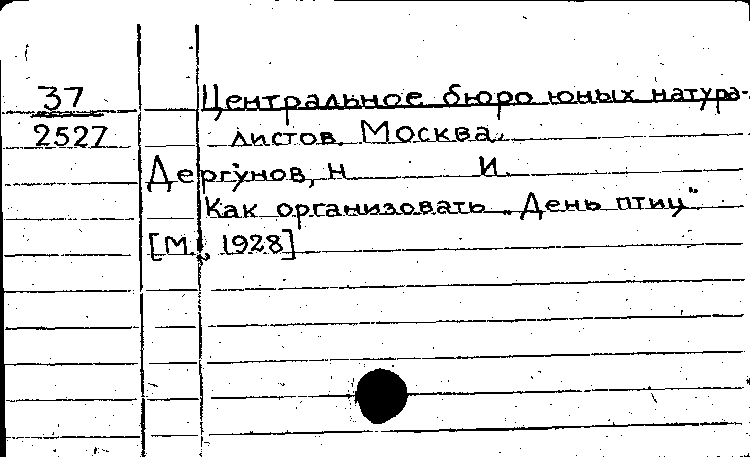 37 Центральное бюро юных натура-
2527 листов. Москва.
Дергунов, Н И.
Как организовать „День птиц"
[М., 1928]